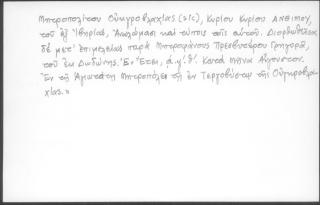 Μητροπολίτου Οὐγκροβλαχίας (sic), Κυρίου Κυρίου Ἀνθίμου,
τοῦ ἐξ Ἰβηρίας, Ἀναλώμασι καὶ τύποις τοῖς αὐτοῦ. Διορθωθεῖσα
δὲ μετ' ἐπιμελείας παρὰ Μητροφάνους Πρεσβυτέρου Γρηγορᾶ,
τοῦ ἐκ Δωδώνης. Ἐν Ἔτει, ͵α.ψ.θ. Κατὰ Μῆνα Αὔγουστον.
Ἐν τῇ Ἁγιωτάτῃ Μητροπόλει τῇ ἐν Τεργοβύστῳ τῆς Οὐγκροβλα-
χίας.»